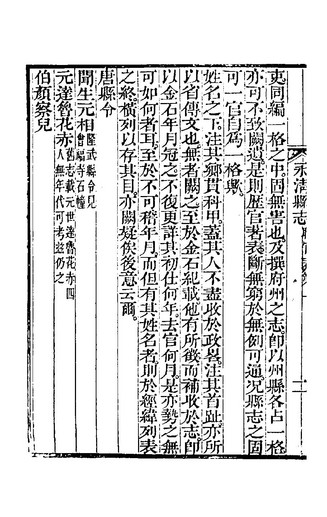 吏同編一格之中固無害也及撰府州之志卽以州縣各占一格
亦可不致闕遺是則歷官著表斷無窮於無例可通况縣志之固
可一官自爲一格歟
姓名之下注其鄉貫科甲蓋其人不盡收於政畧注其首趾亦所
以省傳文也無者闕之至於金石紀載他有所徵而補收於志卽
以金石年月冠之不復更詳其初仕何年去官何月是亦勢之無
可如何者耳至於不可稽年月而但有其姓名者則於經緯列表
之終橫列以存其目亦闕疑俟後意云爾
唐縣令
聞生元相 隆武縣令見會福寺石幢
元達魯花赤 舊志載元世達魯花赤四人無年代可考茲仍之
伯顏察兒
永清縣志